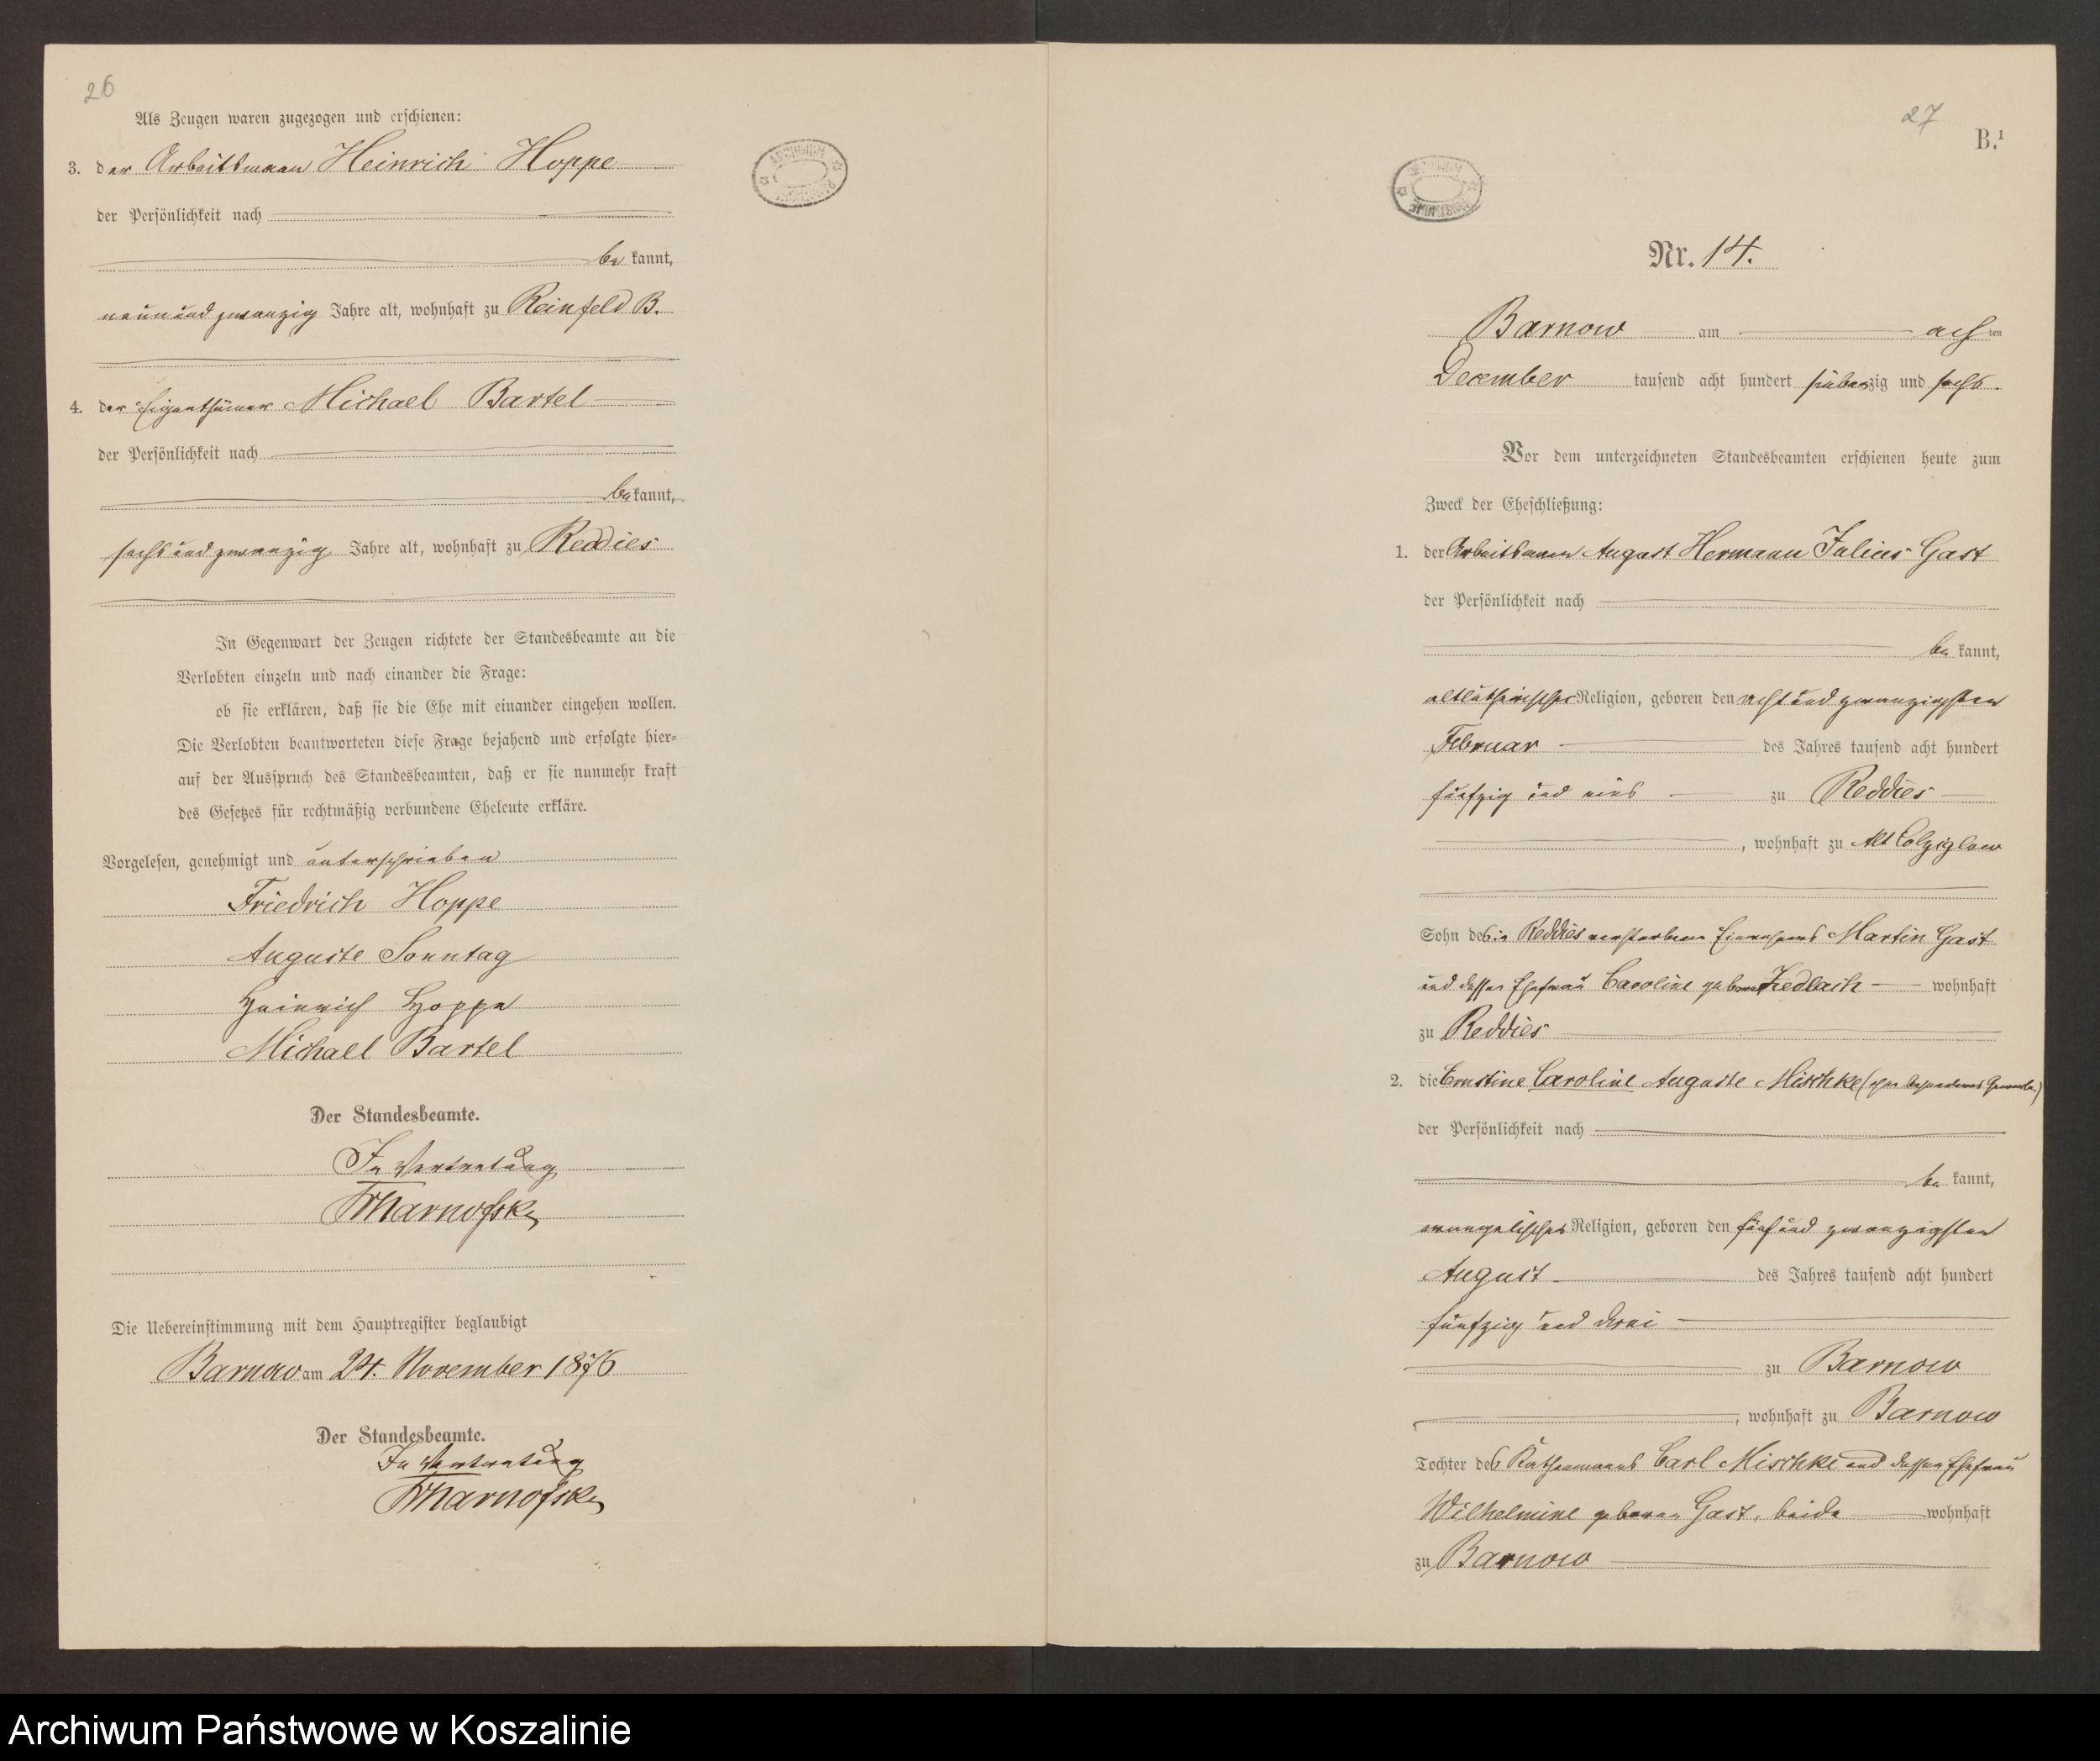 26
Als Zeugen waren zugezogen und erschienen:
3. der Arbeitsmann Heinrich Hoppe
der Persönlichkeit nach
be kannt,
neunundzwanzig Jahre alt, wohnhaft zu Reinfeld B.
4. der Eigenthümer Michael Bartel
der Persönlichkeit nach
be kannt,
sechsundzwanzig Jahre alt, wohnhaft zu Reddies
In Gegenwart der Zeugen richtete der Standesbeamte an die
Verlobten einzeln und nach einander die Frage:
ob sie erklären, daß sie die Ehe mit einander eingehen wollen.
Die Verlobten beantworteten diese Frage bejahend und erfolgte hier-
auf der Ausspruch des Standesbeamten, daß er sie nunmehr kraft
des Gesetzes für rechtmäßig verbundene Eheleute erkläre.
Vorgelesen, genehmigt und unterschrieben
Friedrich Hoppe
Auguste Sonntag
Heinrich Hoppe
Michael Bartel
Der Standesbeamte.
In Vertretung
Die Uebereinstimmung mit dem Hauptregister beglaubigt
Barnow am 24. November 1876
Der Standesbeamte.
In Vertretung
ARCHIWUM
27
B.¹
Nr. 14.
Barnow am ach ten
December tausend acht hundert siebenzig und sechs.
Vor dem unterzeichneten Standesbeamten erschienen heute zum
Zweck der Eheschließung:
1. der Arbeitsmann August Hermann Julius Gast
der Persönlichkeit nach
be kannt,
altlutherischer Religion, geboren den acht und zwanzigsten
Februar des Jahres tausend acht hundert
fünfzig und eins zu Reddies
, wohnhaft zu Alt Colziglow
Sohn des in Reddies verstorbenen Einwohners Martin Gast
und dessen Ehefrau Caroline geboren wohnhaft
zu Reddies
2. die Ernstine Caroline Auguste Mischke (ohne besonderes Gewerbe)
der Persönlichkeit nach
be kannt,
evangelischer Religion, geboren den fünf und zwanzigsten
August des Jahres tausend acht hundert
fünfzig und drei
zu Barnow
, wohnhaft zu Barnow
Tochter des Käthenmanns Carl Mischke und dessen Ehefrau
Wilhelmine geboren Gast, beide wohnhaft
zu Barnow
Archiwum Państwowe w Koszalinie